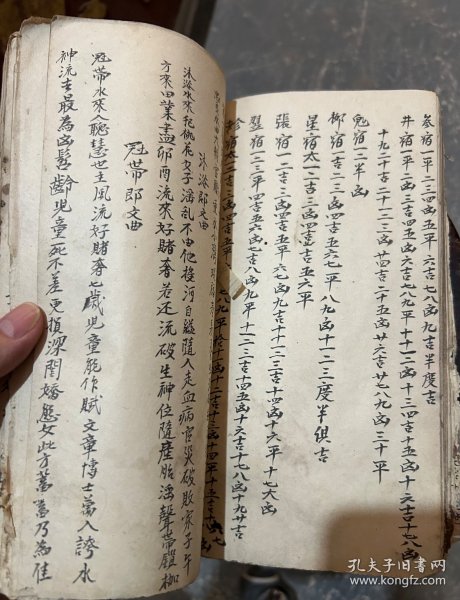 参宿一平二三四凶五平六吉七八凶九吉半度吉
井宿一平二凶三吉四凶五六吉七八九平十十一凶十二三四吉十五平十六吉十七八凶
十九二十吉廿一二三凶廿四吉二十五凶廿六吉廿七八九凶三十平
鬼宿一二半凶
柳宿一吉二三凶四五吉六七平八九凶十一十二三度半俱吉
星宿太一二吉三凶四吉五六平
張宿一二吉三凶四吉五平六七凶九吉十十一二三吉十四凶十六平十七大凶
翌宿一二三平四吉五六凶七吉八凶九平十一二三吉十四五凶十六吉十七八凶十九廿吉
沐浴郎文曲
沐浴水來犯桃花女子淫乱不由他投河自縊隨人走血病官災破敗家子午
方來田業盡卯酉流來好賭奢若还流破生神位隨産胎淫聲帯鎖枷
冠帯郎文曲
冠帯水來人聰慧也主風流好賭奢七歲児童能作賦文章博士萬人誇水
神流去最為凶髫齡児童死不差更損深閨嬌態女此方蓄蓄乃為佳
孔夫子旧书网
www.kongfz.com